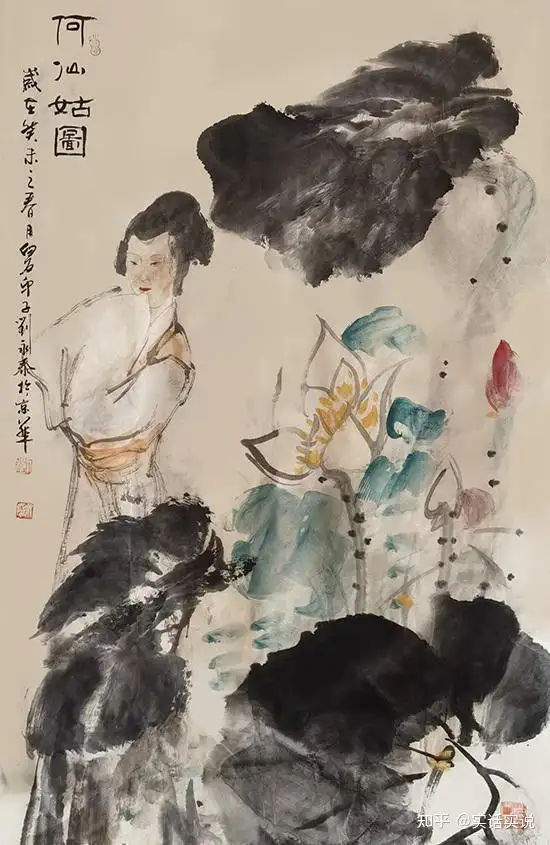 何仙姑圖
歲在癸未之春月劉永泰於京華
知乎 @实话实说